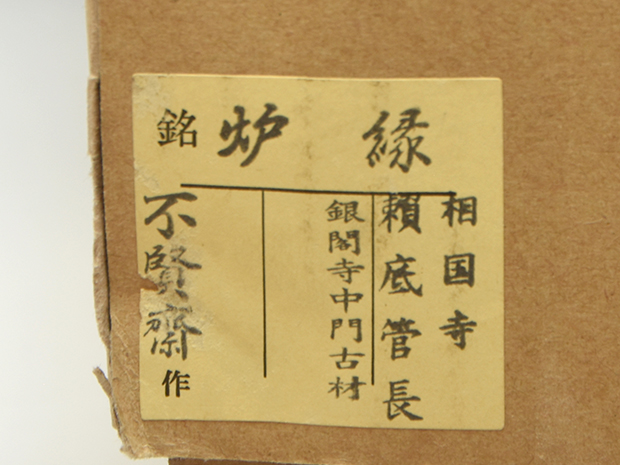 銘 炉 縁
相国寺
頼底管長
銀閣寺中門古材
不賢斎作